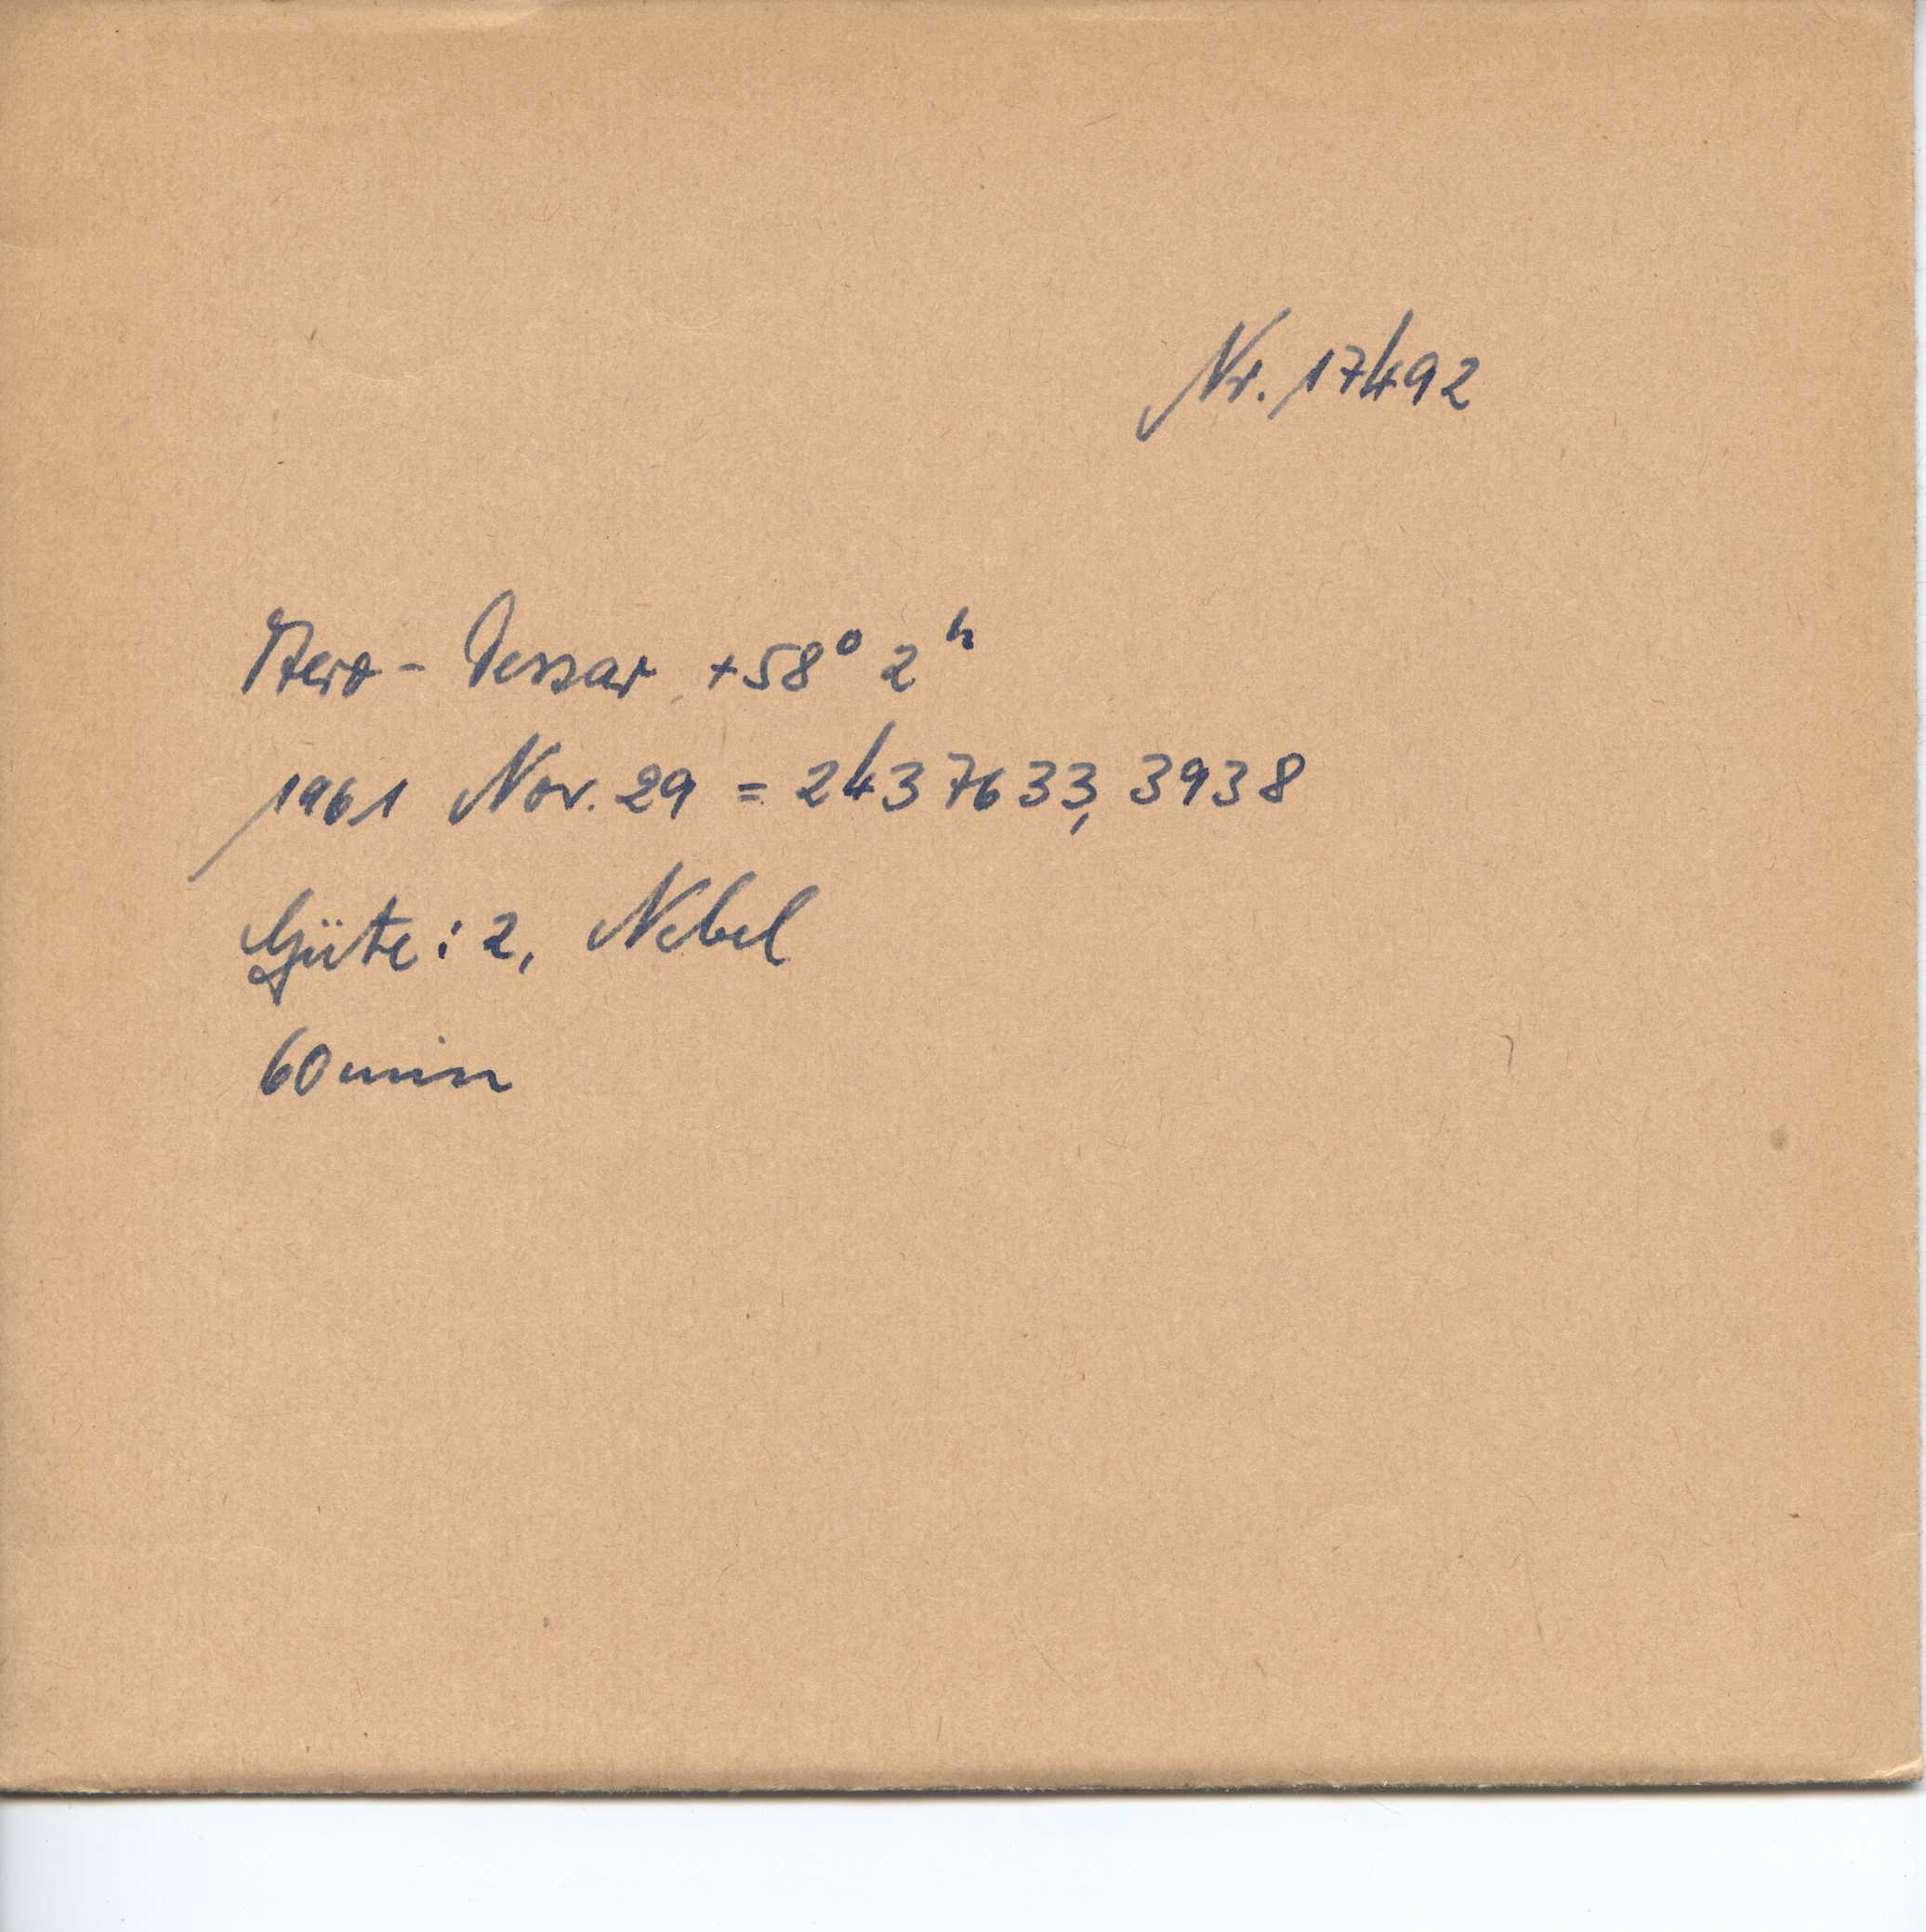 Nr. 17492
Aero-Tessar +58° 2ʰ
1961 Nov. 29 = 2437633,3938
Güte: 2, Nebel
60 min